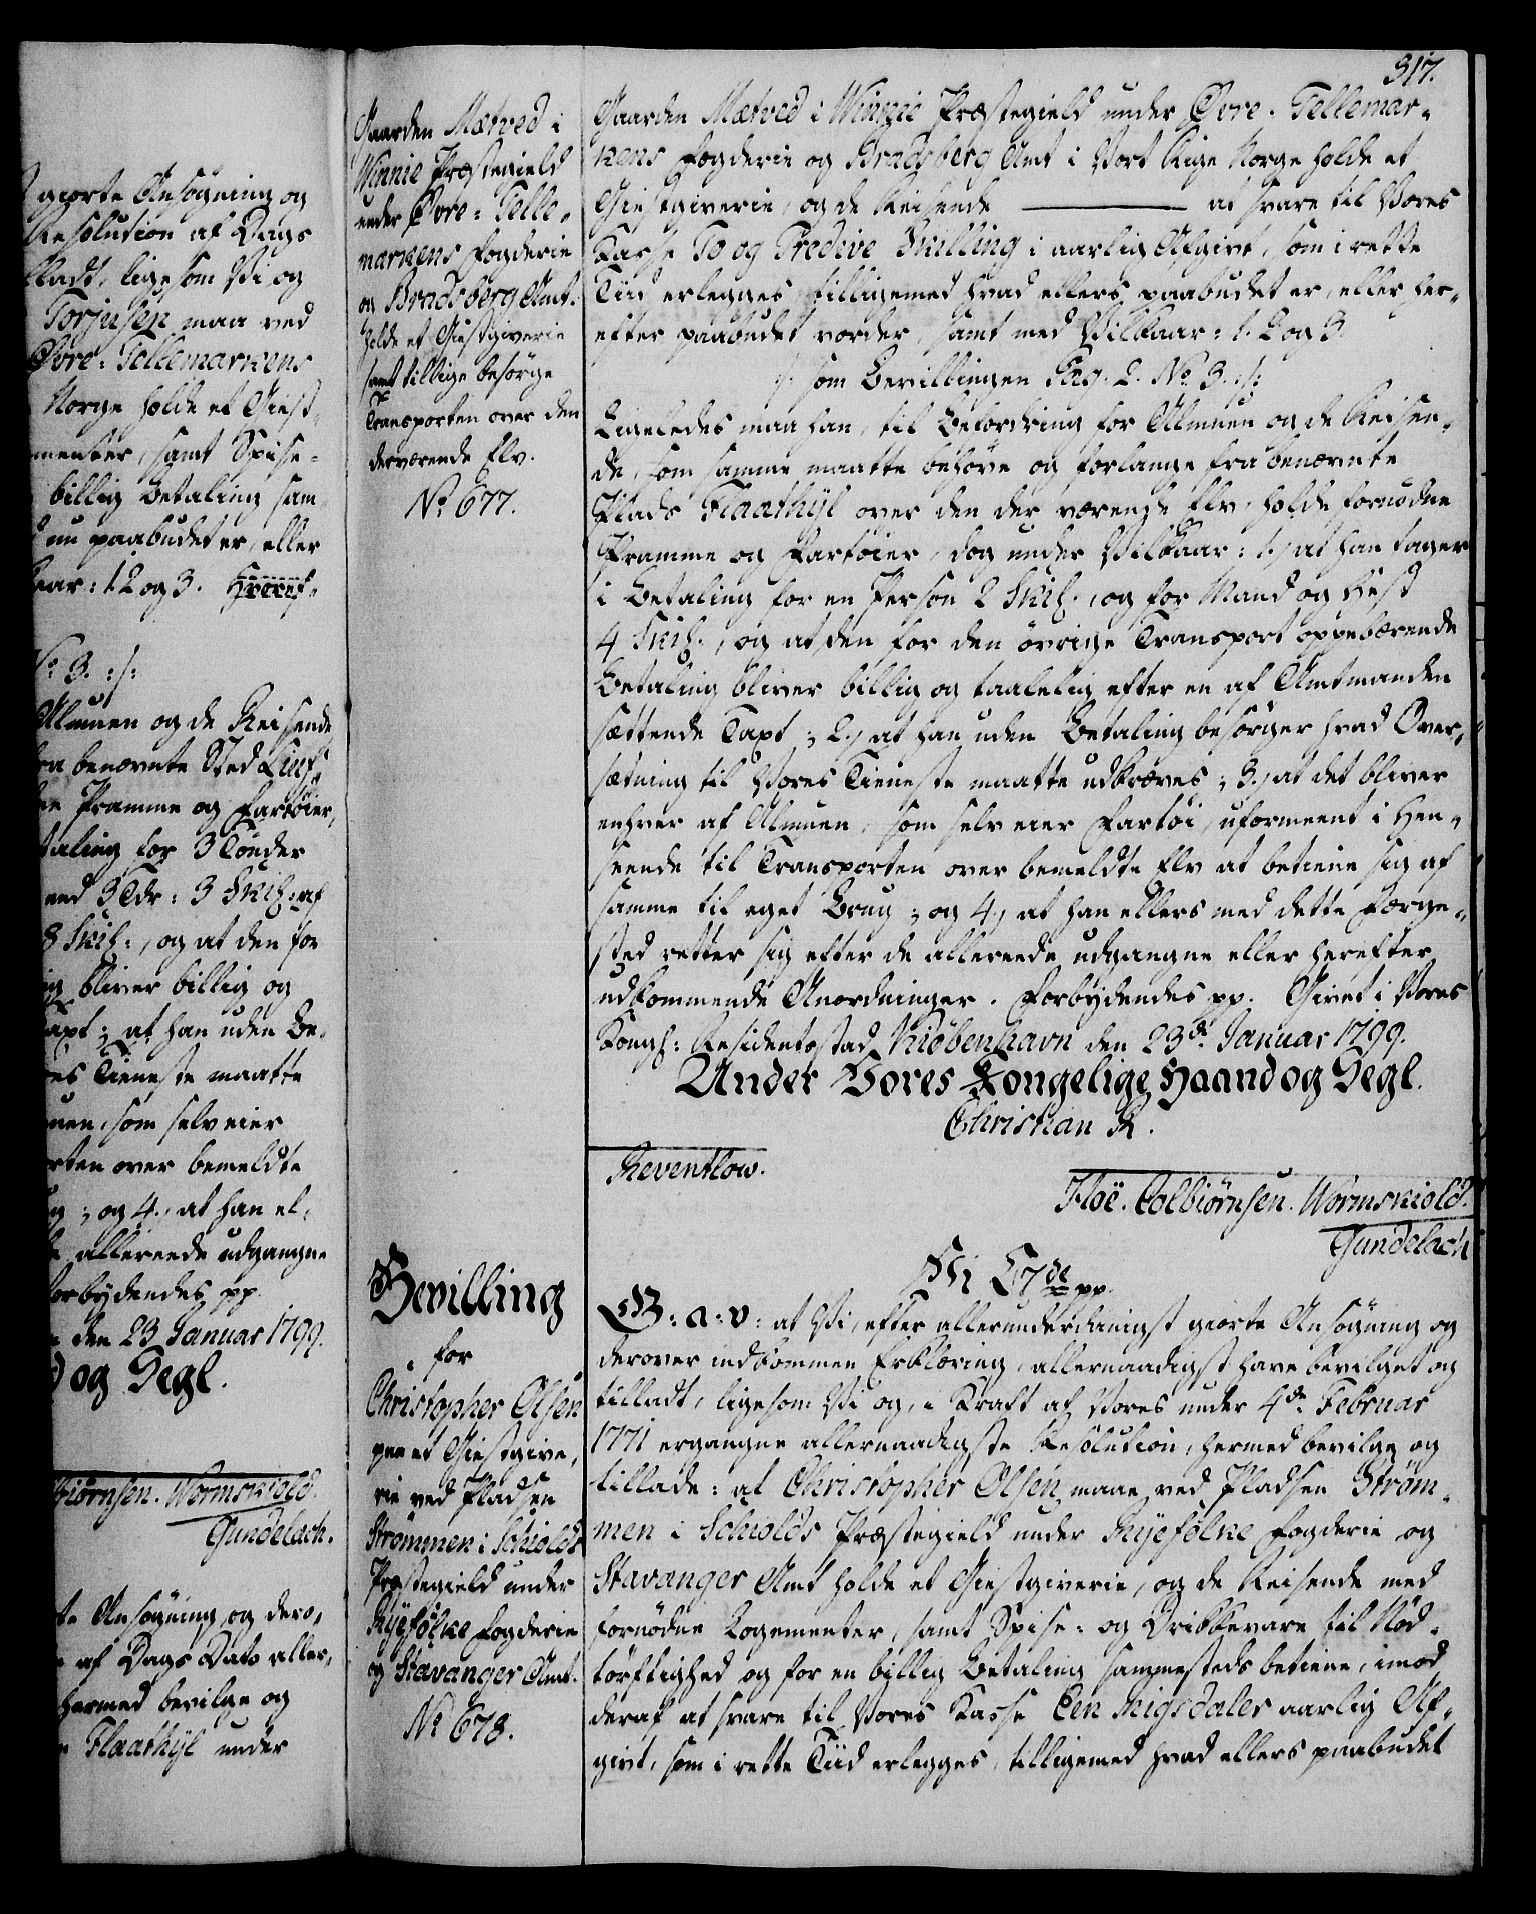 317.
giorte Ansøgning og
Resolution af Dags
tladt, ligesom Vi og
Torjusen maa ved
Øvre-Tellemarkens
Norge holde et Giest-
menter, samt Spise-
billig Betaling sam-
nu paabudet er, eller
kaar: 1. 2 og 3.
No 3. :/:
Almuen og de Reisende
fra benævnte Sted
Pramme og Fartøier,
taling for 3 Tønder
3 Tdr: 3 Skil: af
8 Skil:, og at den for
bliver billig og
Taxt; at han uden Be-
res Tieneste maatte
muen, som selv eier
orten over bemeldte
; og 4., at han el-
allereede udgangne
Forbydendes pp.
den 23 Januar 1799.
og Segl.
biørnsen. Wormskiold.
Gundelach.
te Ansøgning og dero-
af Dags Dato aller-
hermed bevilge og
Flaathyl under
Gaarden Mætved i
Winnie Præstegield
under Øvre-Telle-
markens Fogderie
og Bradsberg Amt.
holde et Giestgiverie
samt tillige besörge
Transporten over den
derværende Elv.
No 677.
Gaarden Mætved i Winnie Præstegield under Øvre-Tellemar-
kens Fogderie og Bradsberg Amt i Vort Rige Norge holde et
Giestgiverie, og de Reisende ——— at svare til Vores
Kasse To og Tredive Skilling i aarlig Afgivt, som i rette
Tiid erlegges, tilligemed hvad ellers paabudet er, eller her-
efter paabudet vorder, samt med Vilkaar: 1. 2 og 3.
/: som Bevillingen Pag. 2. No 3. :/:
Ligeledes maa han, til Befordring for Almuen og de Reisen-
de, som samme maatte behöve og forlange fra benævnte
Plads Flaathyl over den der værende Elv, holde fornødne
Pramme og Fartøier, dog under Vilkaar: 1., at han tager
i Betaling for en Person 2 Skil., og for Mand og Hest
4 Skil., og at den for den övrige Transport oppebærende
Betaling bliver billig og taalelig efter en af Amtmanden
sættende Taxt; 2., at han uden Betaling besörger hvad Over-
sætning til Vores Tieneste maatte udkræves; 3., at det bliver
enhver af Almuen, som selv eier Fartøi, uformeent i Hen-
seende til Transporten over bemeldte Elv at betiene sig af
samme til eget Brug; og 4., at han ellers med dette Færge-
sted retter sig efter de allereede udgangne eller herefter
udkommende Anordninger. Forbydendes pp. Givet i Vores
Kongl: Residentzstad Kiöbenhavn den 23de Januar 1799.
Under Vores Kongelige Haand og Segl.
Christian R.
Reventlow.
Hoë. Colbiørnsen. Wormskiold.
Gundelach
Bevilling
for
Christopher Olsen
paa et Giestgive-
rie ved Pladsen
Strömmen i Schiolds
Præstegield under
Ryefölke Fogderie
og Stavanger Amt.
No 678.
Vi C 7de pp.
G: a: v: at Vi, efter allerunderdanigst giorte Ansøgning og
derover indkommen Erklæring, allernaadigst have bevilget og
tilladt, ligesom Vi og, i Kraft af Vores under 4de Februar
1771 ergangne allernaadigste Resolution, hermed bevilge og
tillade: at Christopher Olsen maae ved Pladsen Strøm-
men i Schiolds Præstegield under Ryefölke Fogderie og
Stavanger Amt holde et Giestgiverie, og de Reisende med
fornödne Logementer, samt Spise- og Drikkevare til Nød-
törftighed og for en billig Betaling sammesteds betiene, imod
deraf at svare til Vores Kasse Een Rigsdaler aarlig Af-
givt, som i rette Tiid erlegges, tilligemed hvad ellers paabudet